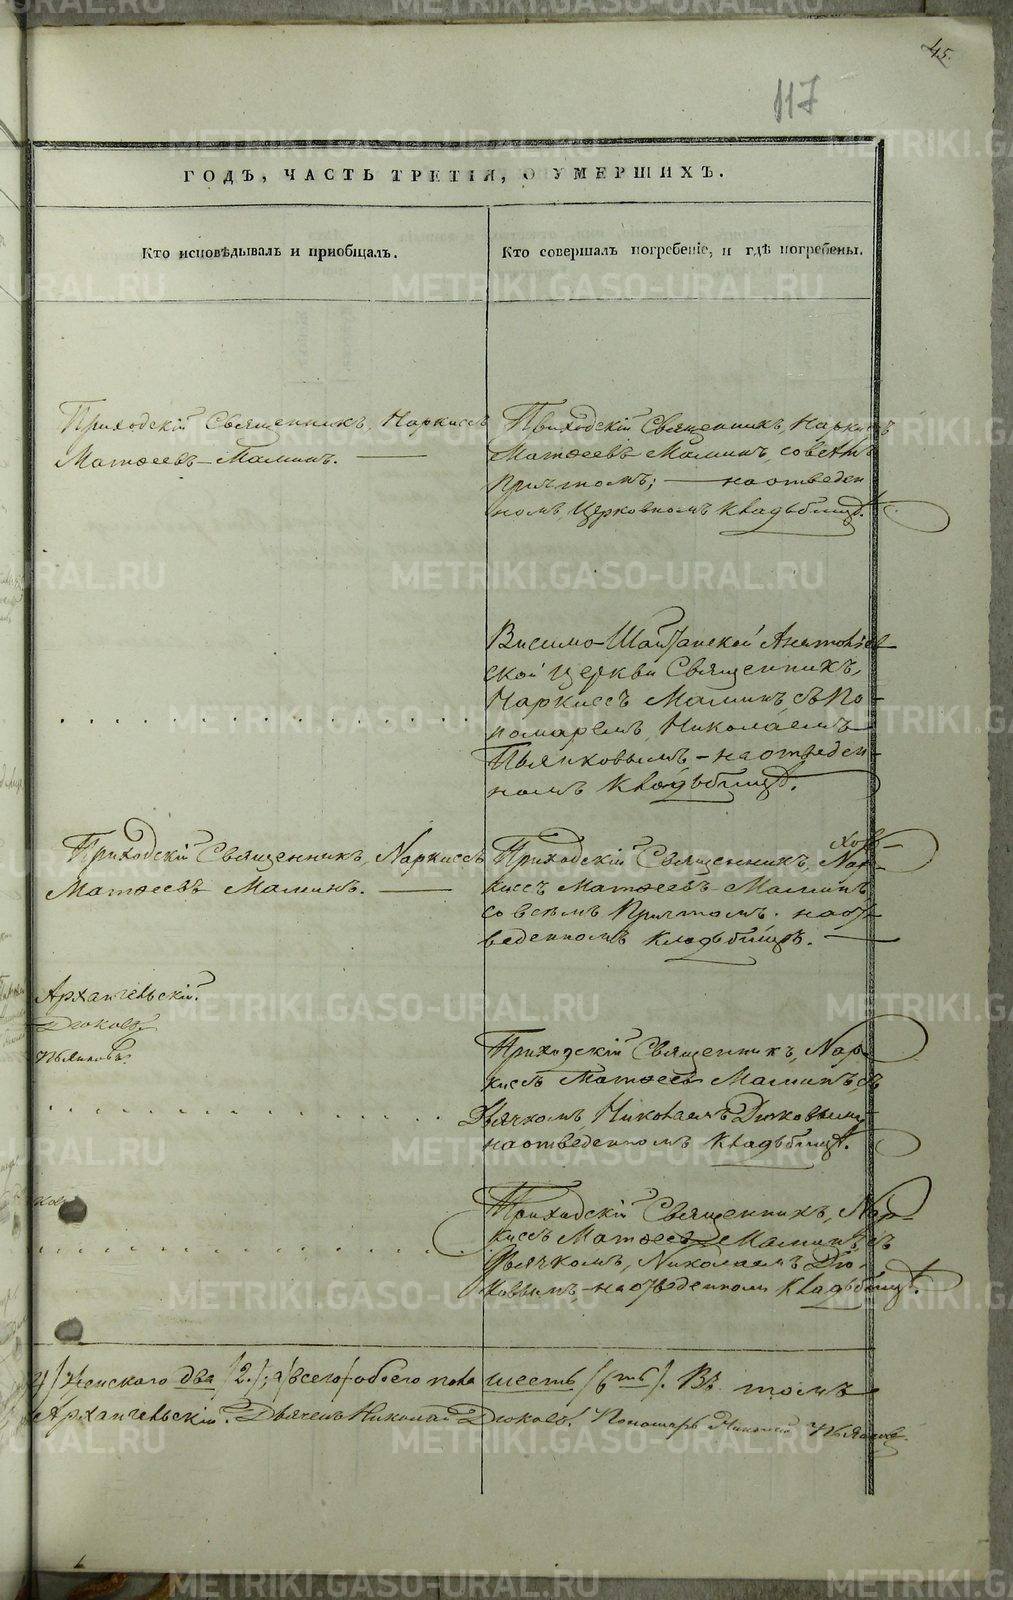 45.
117
ГОДЪ, ЧАСТЬ ТРЕТІЯ, О УМЕРШИХЪ.
Кто исповѣдывалъ и приобщалъ.
Кто совершалъ погребеніе, и гдѣ погребены.
Приходскій Священникъ, Наркиссъ
Матѳеевъ Маминъ.
Приходскій Священникъ, Наркиссъ
Матѳеевъ Маминъ, со всѣмъ
Причтомъ; — на отведен
номъ, Церковномъ Кладьбищѣ.
Висимо-Шайтанской Анатоліев
ской церкви Священникъ,
Наркиссъ Маминъ съ По-
номаремъ, Николаемъ
Пьянковымъ — на отведен-
номъ Кладьбищѣ.
Приходскій Священникъ, Наркиссъ
Матѳеевъ Маминъ.
Приходскій Священникъ, Нар-
киссъ Матѳеевъ Маминъ
со всѣмъ Причтомъ. на от
веденномъ кладьбищѣ.
Архангельскій.
Дюковъ
Пьянковъ.
Приходскій Священникъ, Нар-
киссъ Матѳеевъ Маминъ, съ
Дьячкомъ, Николаемъ Дюковымъ
на отведенномъ кладьбищѣ.
Приходскій Священникъ, Нар-
киссъ Матѳеевъ Маминъ, съ
Дьячкомъ, Николаемъ Дю-
ковымъ — на отведенномъ кладьбищѣ.
4/ Женскаго два /2./; а всего обоего пола шесть /6ть/. Въ томъ
Архангельскій. Дьячекъ Николай Дюковъ. Пономарь Николай Пьянковъ.
METRIKI.GASO-URAL.RU